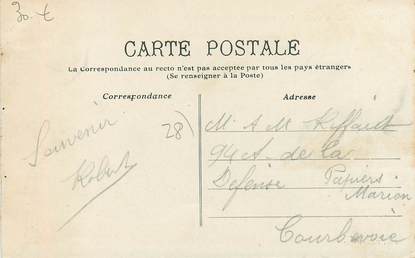 30.€
CARTE POSTALE
La Correspondance au recto n'est pas acceptée par tous les pays étrangers
(Se renseigner à la Poste)
Correspondance
Adresse
Souvenir
Robert
28
M. A M. Riffault
94 A. de la
Defense Papiers
Marion
Courbevoie